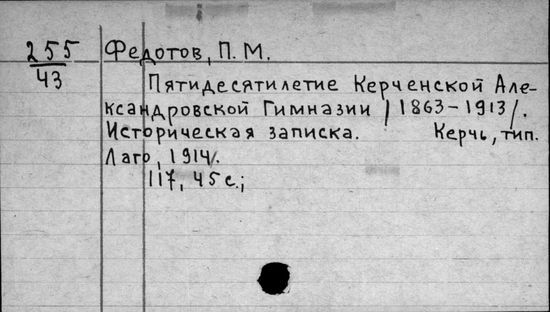 255
43
Федотов, П. М.
Пятидесятилетие Керченской Але-
ксандровской Гимназии /1863-1913/.
Историческая записка. Керчь, тип.
Лаго, 1914.
117, 45 с.;